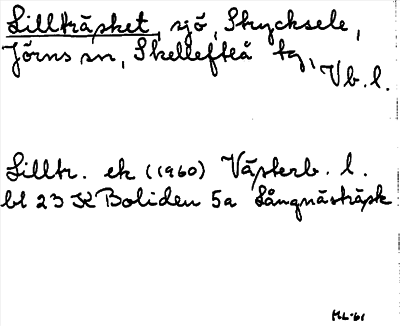 Lillträsket, sjö, Strycksele,
Jörns sn, Skellefteå tg,
Vb. l.
Lilltr. ek (1960) Västerb. l.
bl 23 K Boliden 5a Långnästräsk
HL-61